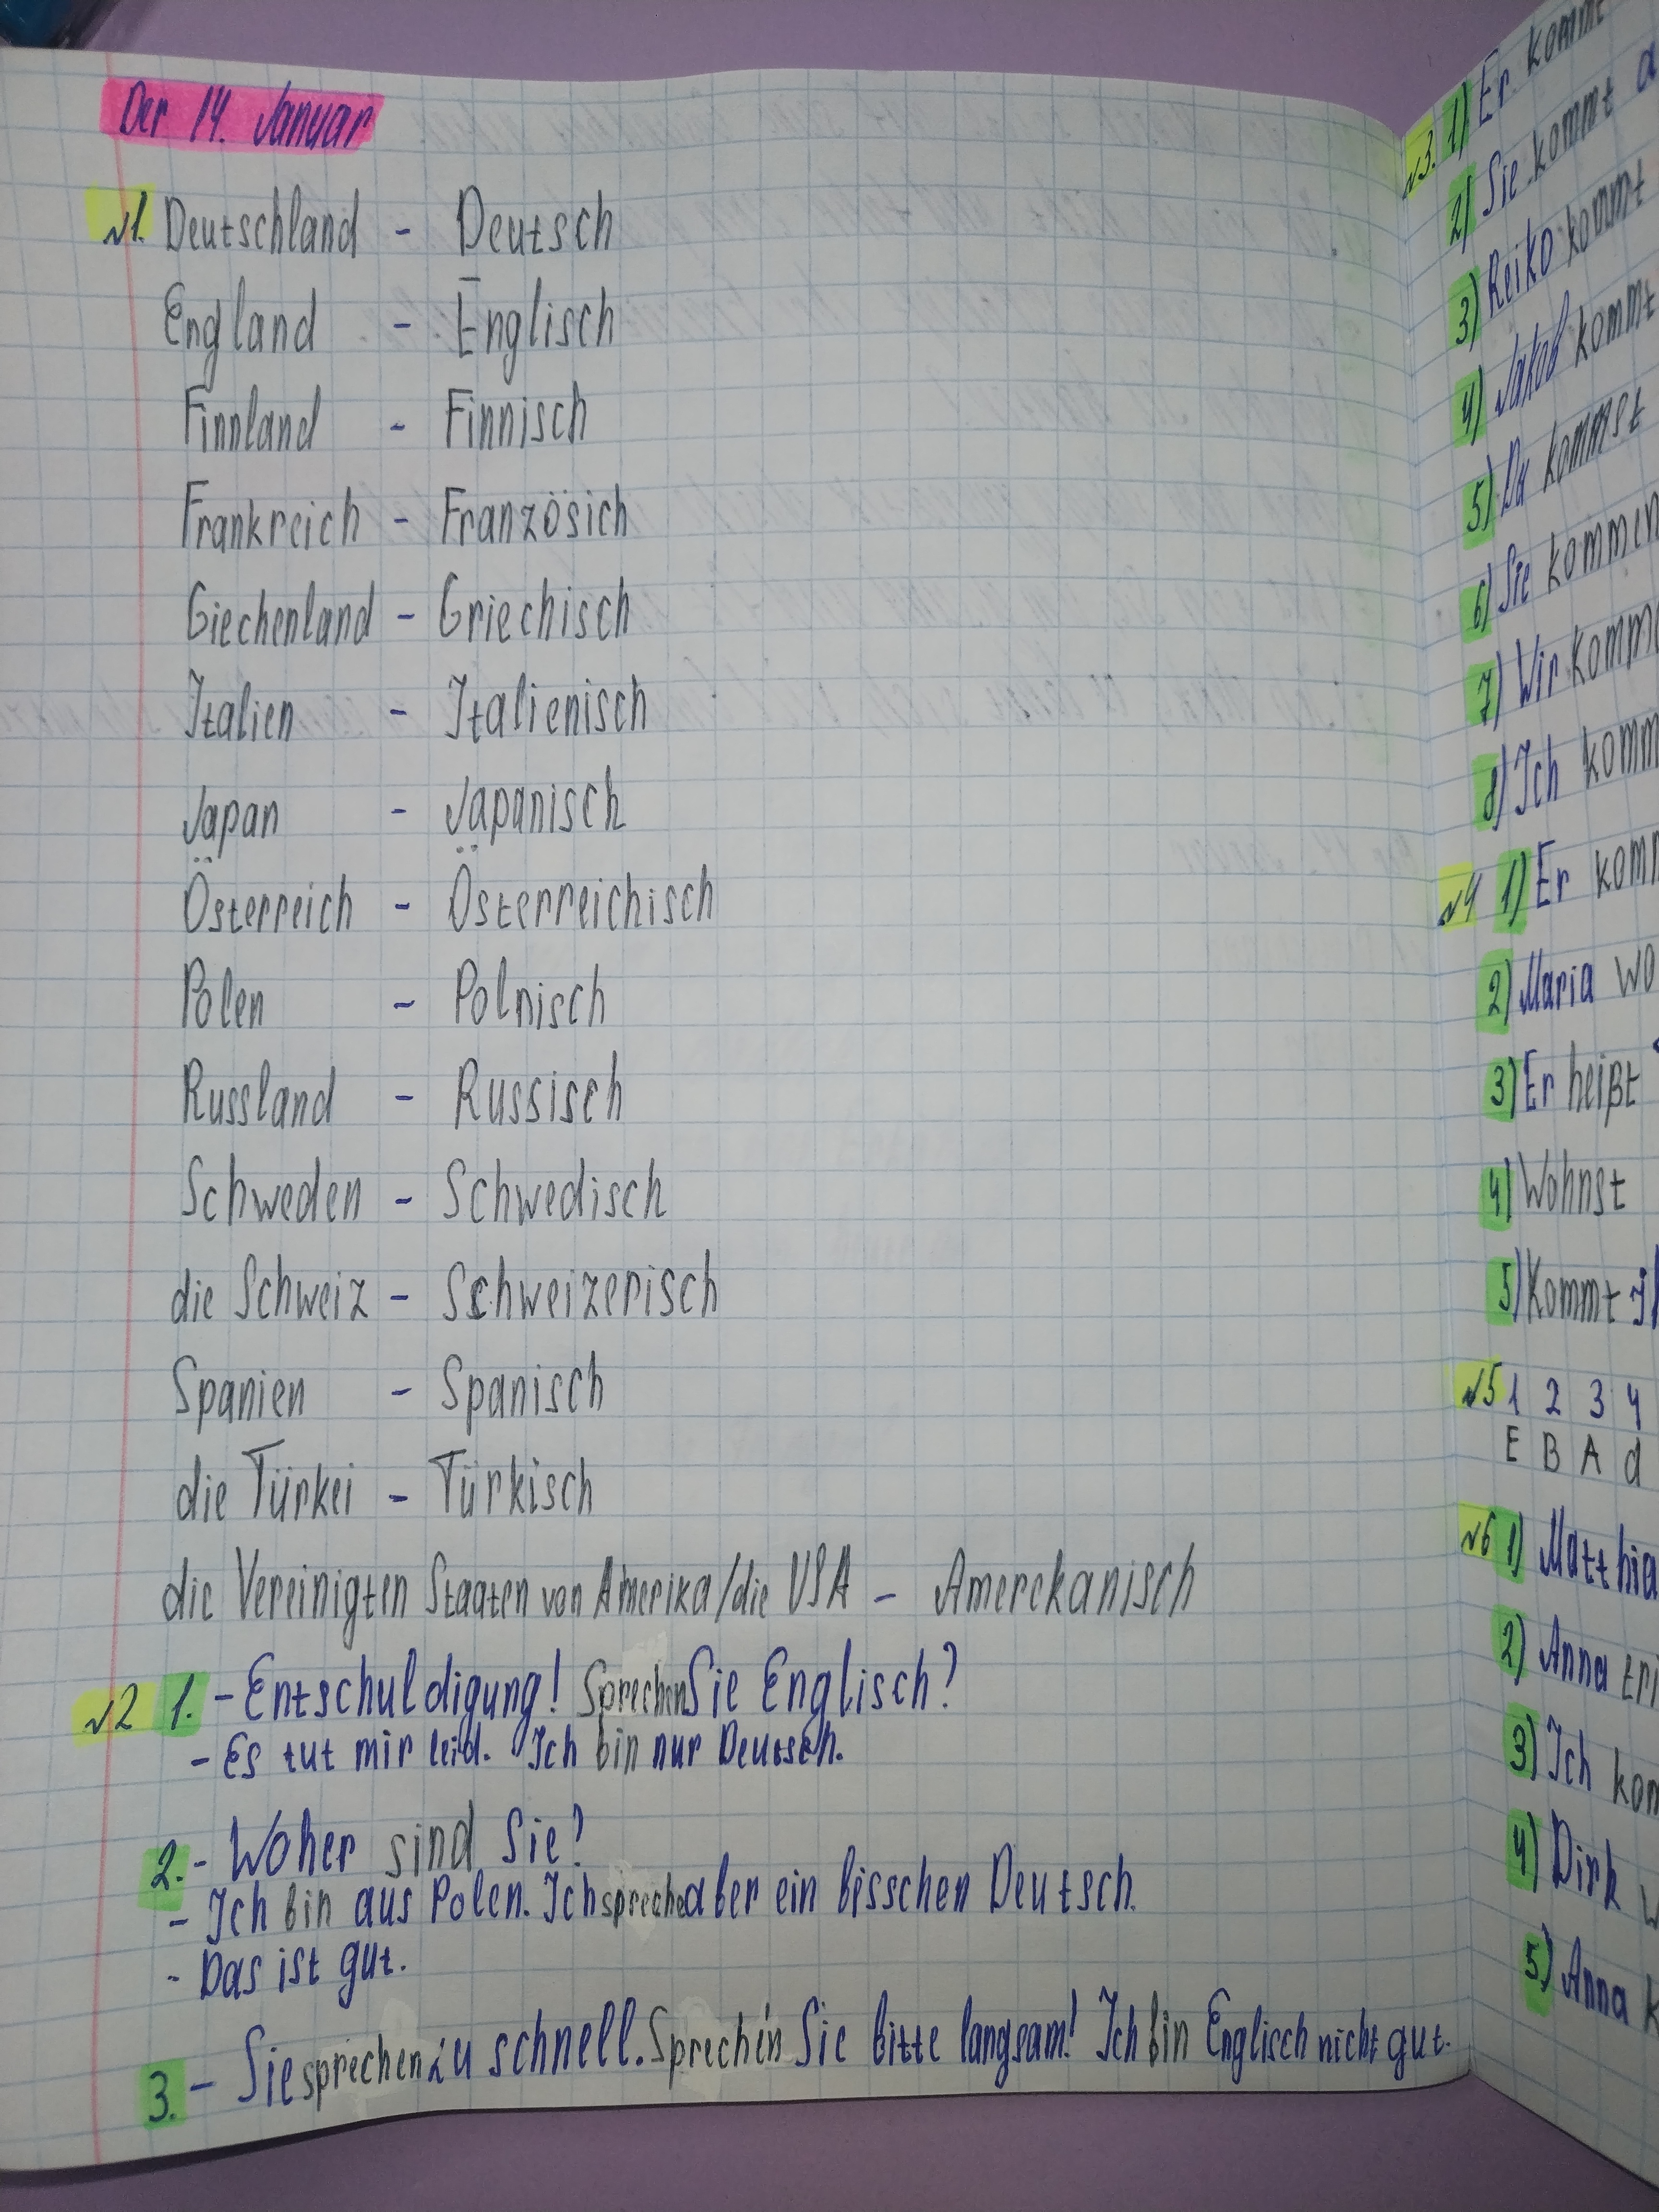 Der 14. Januar
№1. Deutschland - Deutsch
England - Englisch
Finnland - Finnisch
Frankreich - Französich
Giechenland - Griechisch
Italien - Italienisch
Japan - Japanisch
Österreich - Österreichisch
Polen - Polnisch
Russland - Russisch
Schweden - Schwedisch
die Schweiz - Schweizerisch
Spanien - Spanisch
die Türkei - Türkisch
die Vereinigten Staaten von Amerika/die USA - Amerekanisch
№2 1. - Entschuldigung! Sprechen Sie Englisch?
- Es tut mir leid. Ich bin nur Deutsch.
2. - Woher sind Sie?
- Ich bin aus Polen. Ich spreche aber ein bisschen Deutsch.
- Das ist gut.
3. - Sie sprechen zu schnell. Sprechin Sie bitte langsam! Ich bin Englisch nicht gut.
№3. 1) Er kommt
2) Sie kommt a
3) Reiko kommt
4) Jakob kommt
5) Du kommst
6) Sie kommen
7) Wir komme
8) Ich komm
№4 1) Er komm
2) Maria wo
3) Er heißt
4) Wohnst
5) Kommt ih
№5 1 2 3 4
E B A d
№6 1) Matthia
2) Anna tri
3) Ich kom
4) Dirk w
5) Anna k